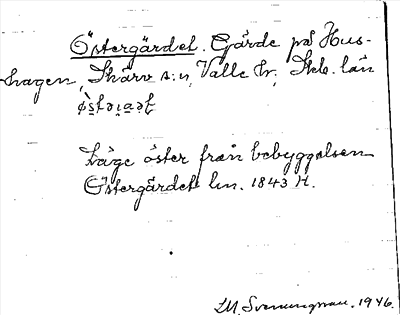 Östergärdet. Gärde på Hus-
hagen, Skärv s:n, Valle hr, Skb. län
Läge öster från bebyggelsen
Östergärdet lm. 1843 H.
M. Svenungsson. 1946.